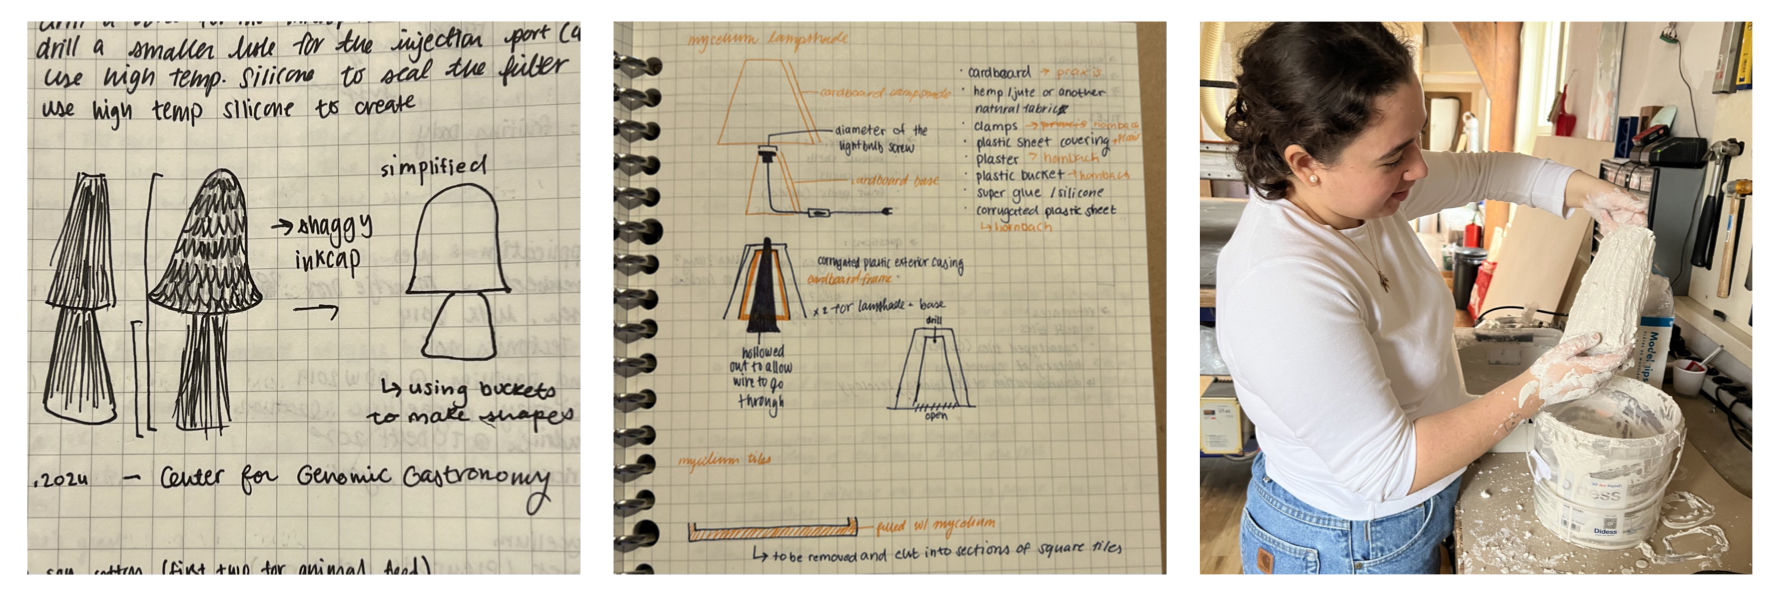 drill a smaller hole for the injection port
use high temp. silicone to seal the filter
use high temp silicone to create
simplified
→ shaggy
inkcap
↳ using buckets
to make shapes
.2024 — Center for Genomic Gastronomy
(first two for animal feed)
mycelium lampshade
cardboard lampshade
diameter of the
lightbulb screw
cardboard base
· cardboard → praxis
· hemp / jute or another
natural fabric
· clamps → praxis hornbach
· plastic sheet covering
· plaster → hornbach
· plastic bucket → hornbach
· super glue / silicone
· corrugated plastic sheet
↳ hornbach
corrugated plastic exterior casing
cardboard frame
x 2 for lampshade + base
drill
hollowed
out to allow
wire to go
through
open
mycelium tiles
filled w/ mycelium
↳ to be removed and cut into sections of square tiles
Model
Didess
Didess